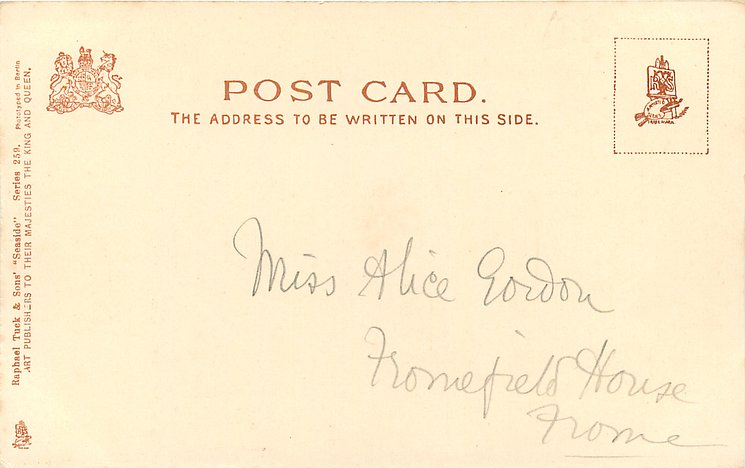 POST CARD.
THE ADDRESS TO BE WRITTEN ON THIS SIDE.
Raphael Tuck & Sons' "Seaside" Series 259. Phototyped in Berlin
ART PUBLISHERS TO THEIR MAJESTIES THE KING AND QUEEN.
Miss Alice Gordon
Fromefield House
Frome